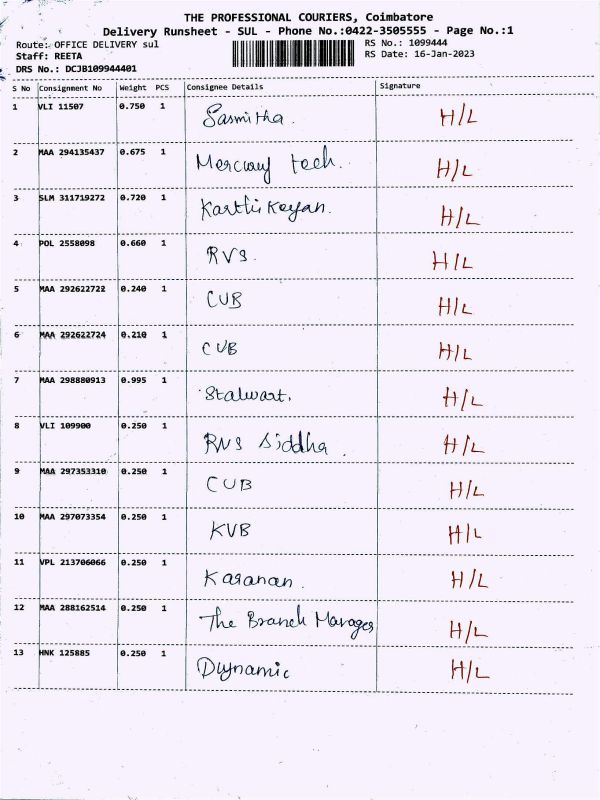 THE PROFESSIONAL COURIERS, Coimbatore
Delivery Runsheet - SUL - Phone No.:0422-3505555 - Page No.:1
Route: OFFICE DELIVERY sul RS No.: 1099444
Staff: REETA RS Date: 16-Jan-2023
DRS No.: DCJB109944401
S No Consignment No Weight PCS Consignee Details Signature
1 VLI 11507 0.750 1 Sasmitha. H/L
2 MAA 294135437 0.675 1 Mercury tech. H/L
3 SLM 311719272 0.720 1 Karthikeyan. H/L
4 POL 2558098 0.660 1 RVS. H/L
5 MAA 292622722 0.240 1 CUB H/L
6 MAA 292622724 0.210 1 CUB H/L
7 MAA 298880913 0.995 1 Stalwart. H/L
8 VLI 109900 0.250 1 RVS Siddha. H/L
9 MAA 297353310 0.250 1 CUB H/L
10 MAA 297073354 0.250 1 KVB H/L
11 VPL 213706066 0.250 1 Karanan. H/L
12 MAA 288162514 0.250 1 The Branch Manager H/L
13 HNK 125885 0.250 1 Dynamic H/L